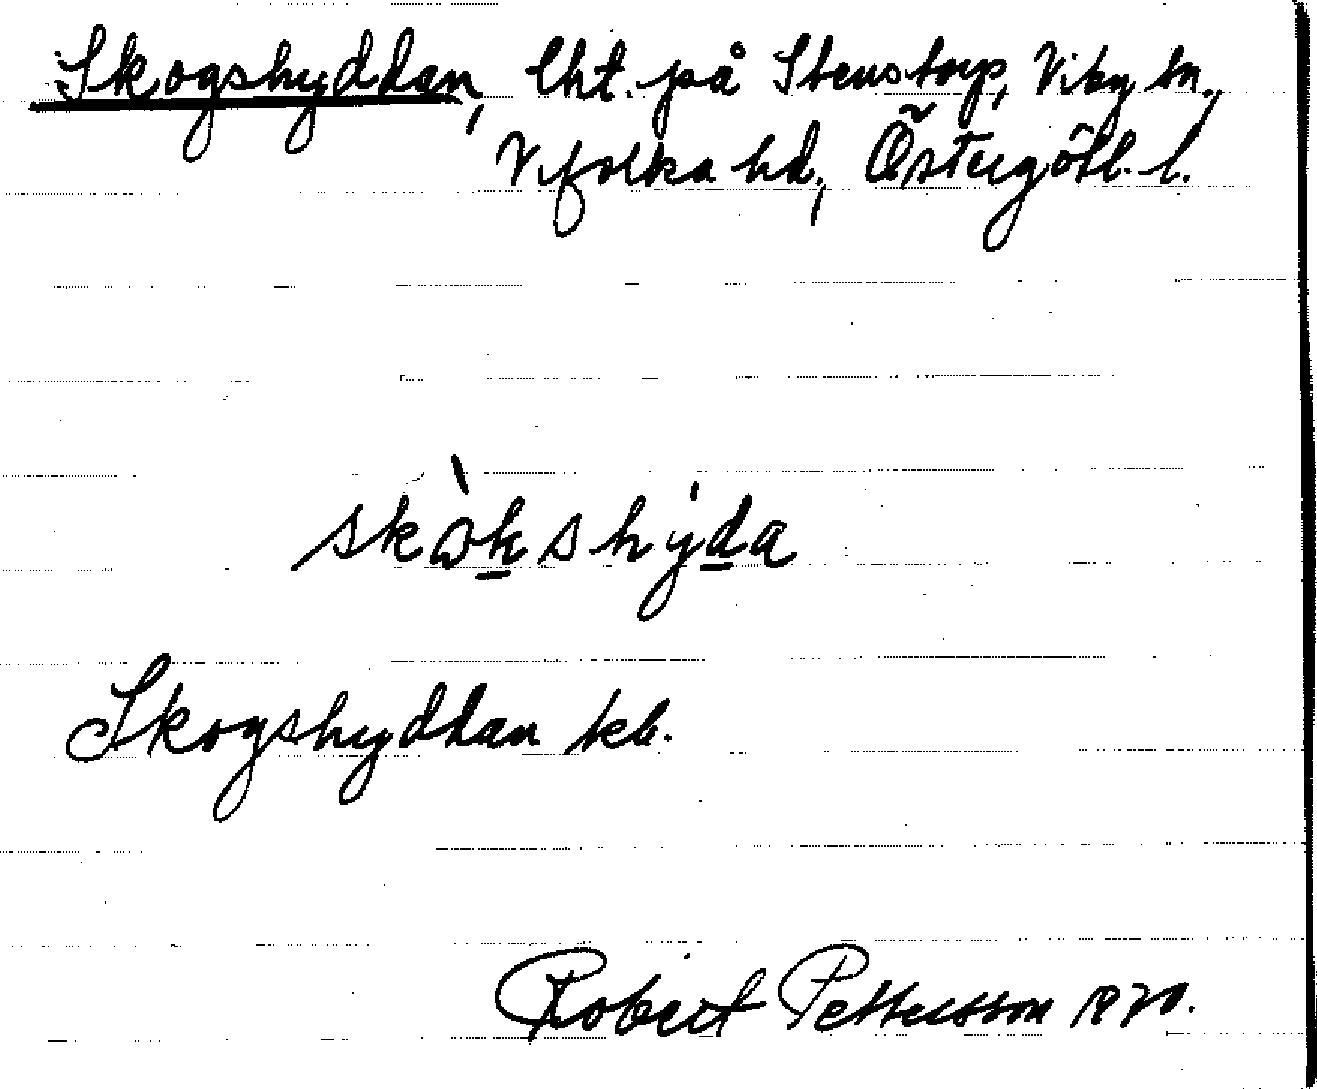 Skogshyddan, lht. på Stenstorp, Viby sn.,
Vifolka hd, Östergötl. l.
skòkshýda
Skogshyddan kb.
Robert Pettersson 1970.